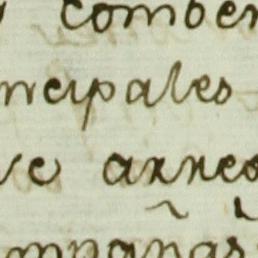 comben
ncipales
ve arreo
mpañas